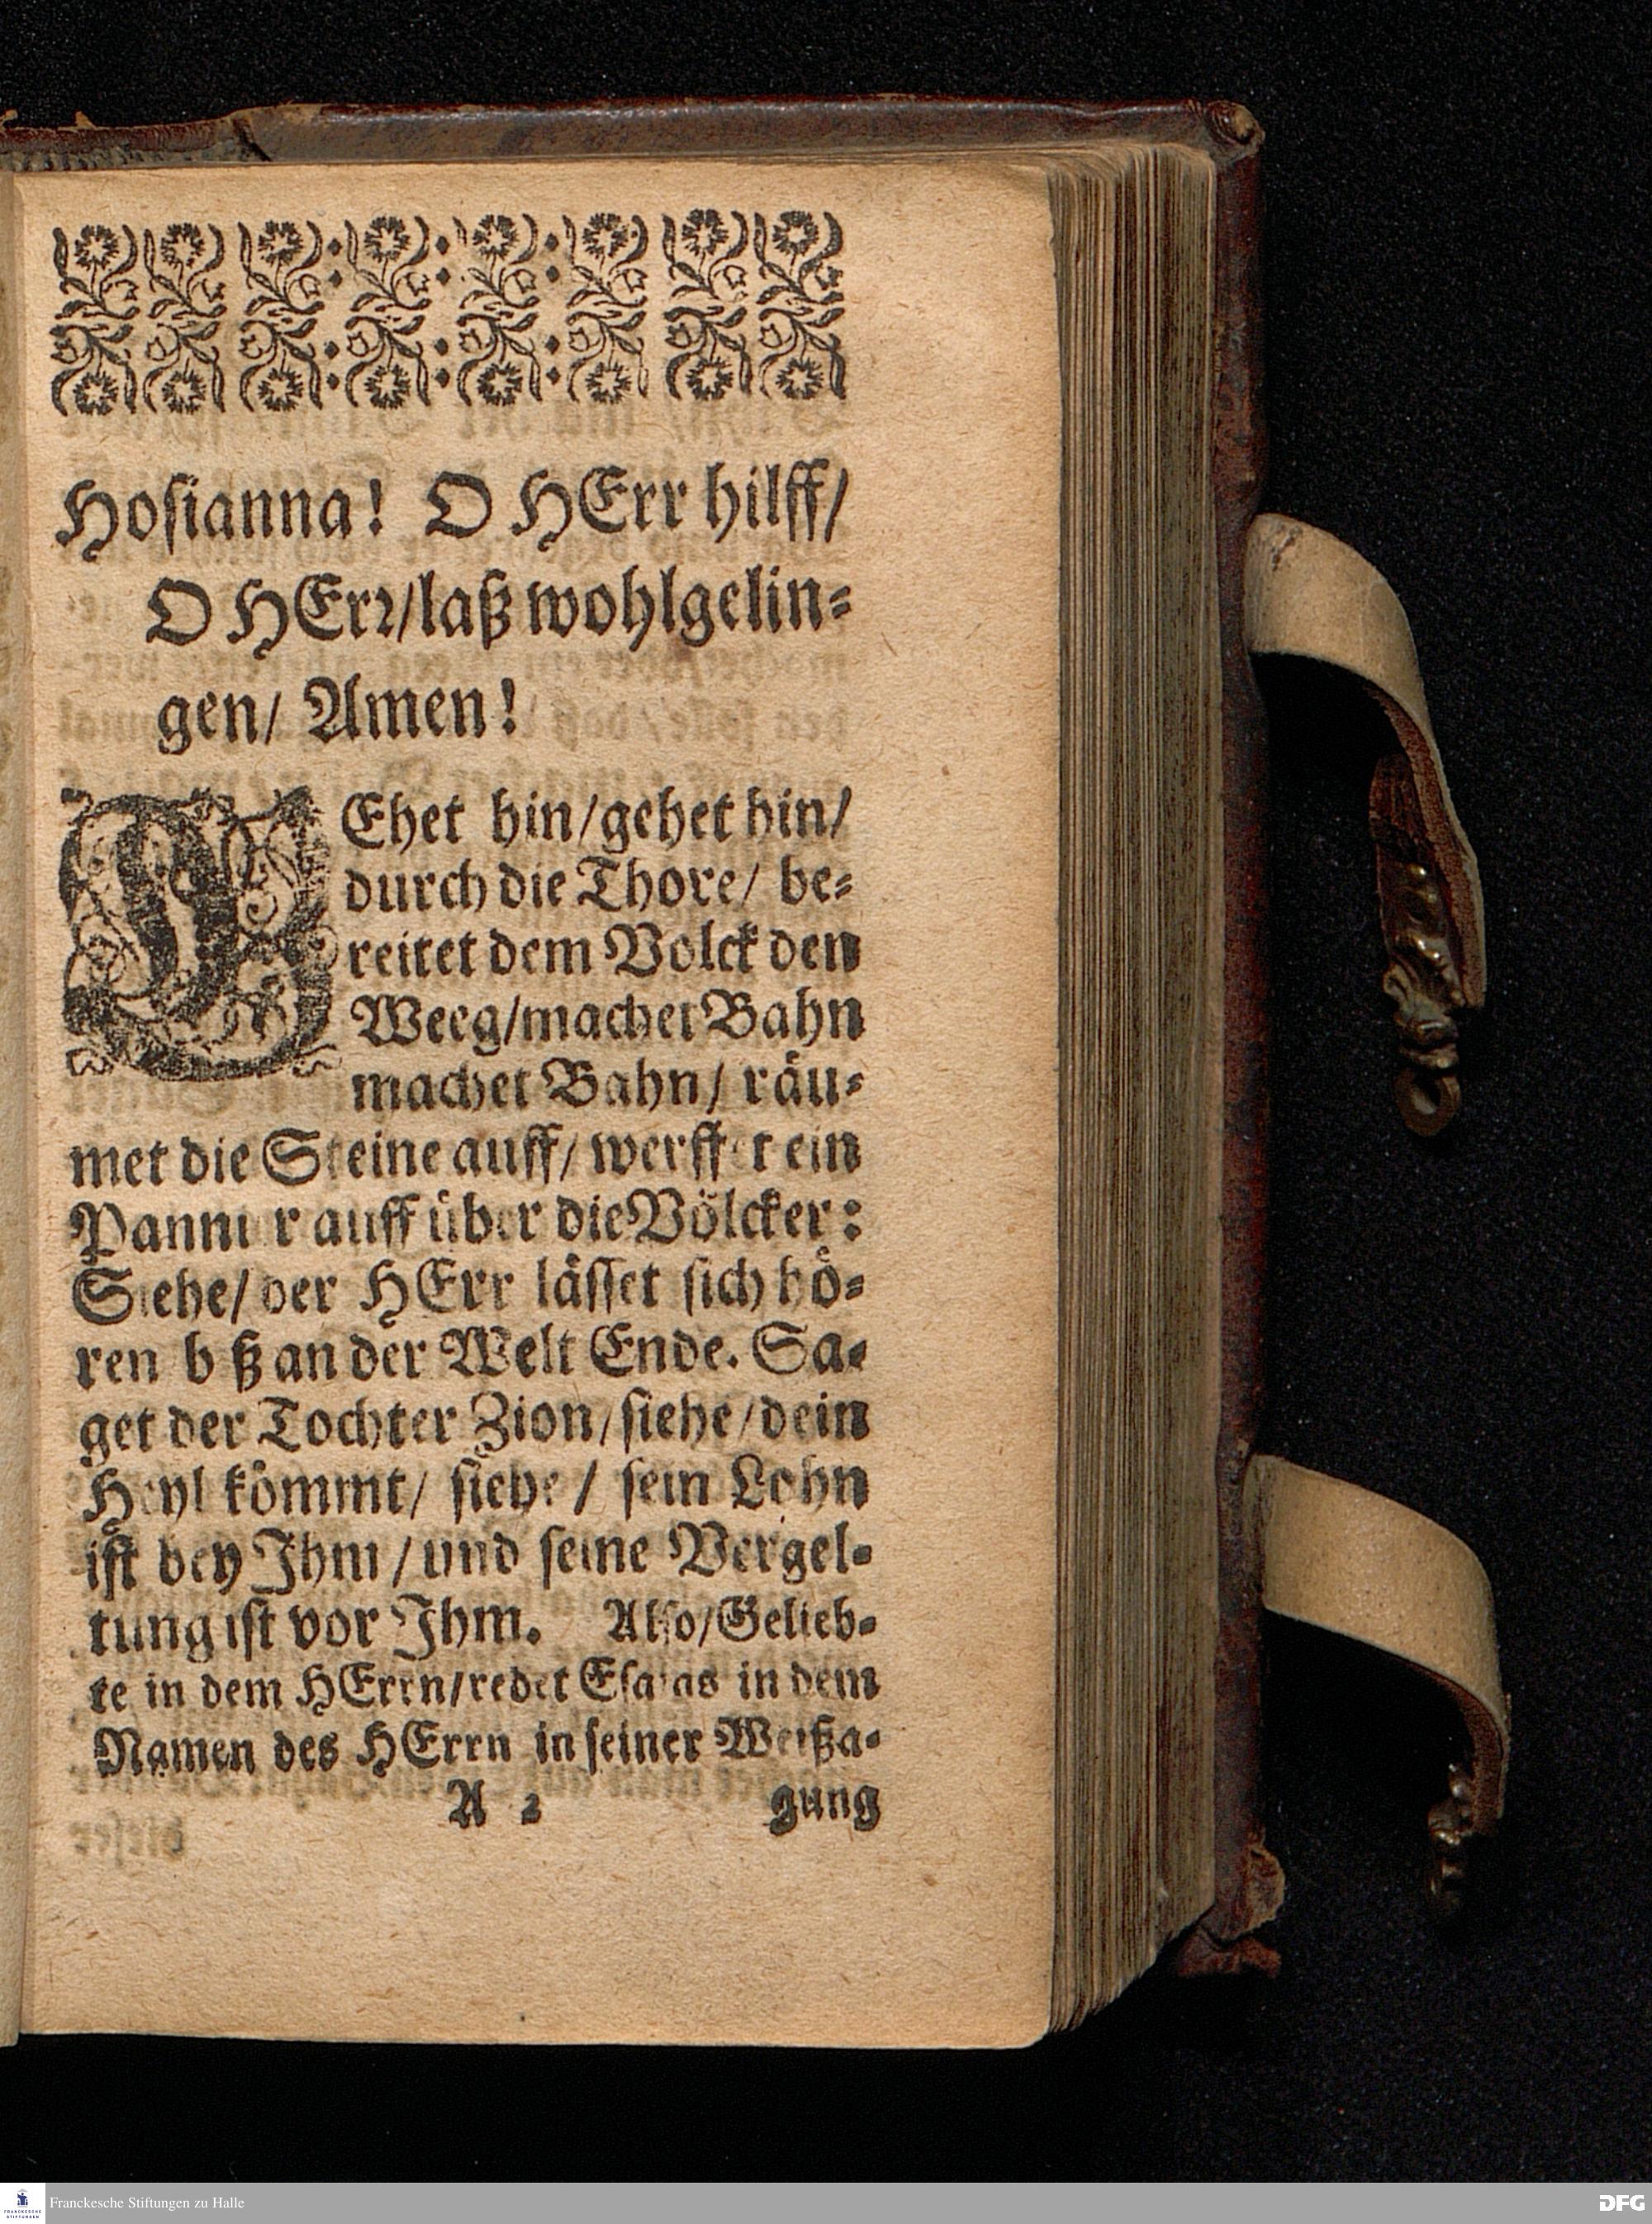 Hosianna! O HErr hilff/
O HErr/laß wohlgelin-
gen/ Amen!
GEhet hin/gehet hin/
durch die Thore/ be-
reitet dem Volck den
Weeg/machet Bahn
machet Bahn/ räu-
met die Steine auff/ werffet ein
Pannier auff über die Völcker:
Siehe/ der HErr lässet sich hö-
ren biß an der Welt Ende. Sa-
get der Tochter Zion/siehe/dein
Heyl kömmt/ siehe/ sein Lohn
ist bey Ihm/und seine Vergel-
tung ist vor Ihm. Also/Gelieb-
te in dem HErrn/redet Esaias in dem
Namen des HErrn in seiner Weißa-
A 2 gung
Franckesche Stiftungen zu Halle
FRANCKESCHE STIFTUNGEN
DFG